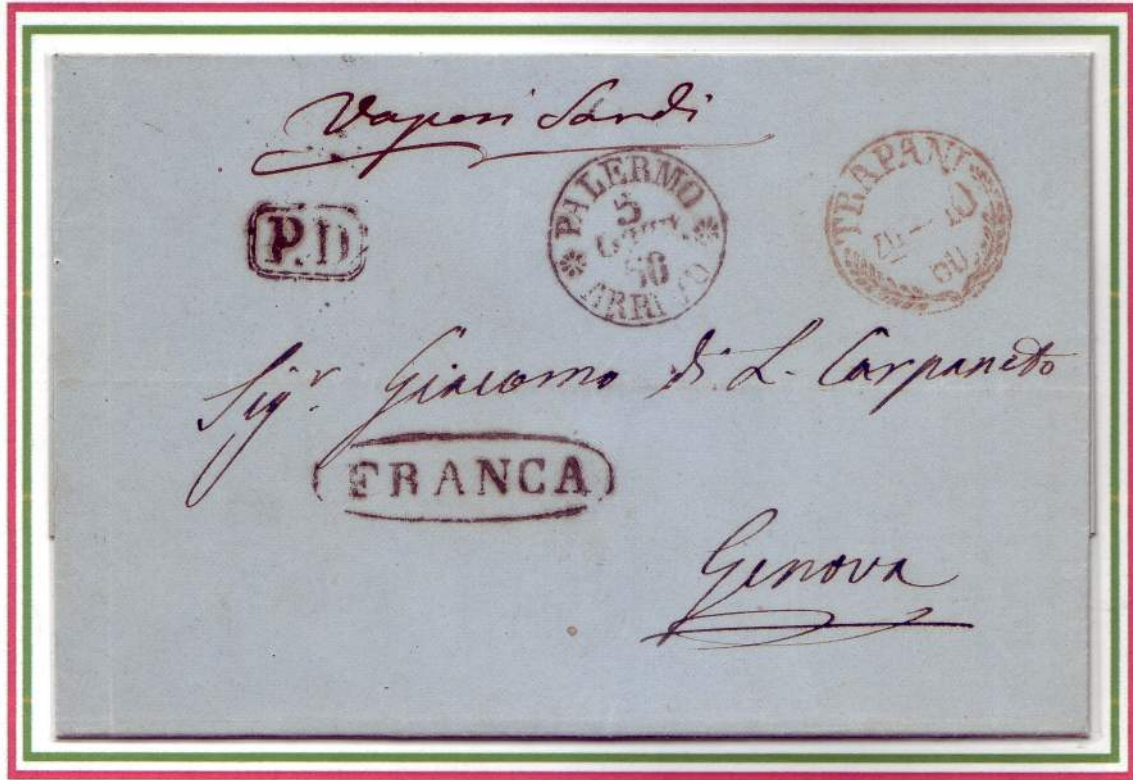 Vapori Sardi
P.D
PALERMO
5
ARRIVO
TRAPANI
Sigr Giacomo di L. Carpaneto
FRANCA
Genova